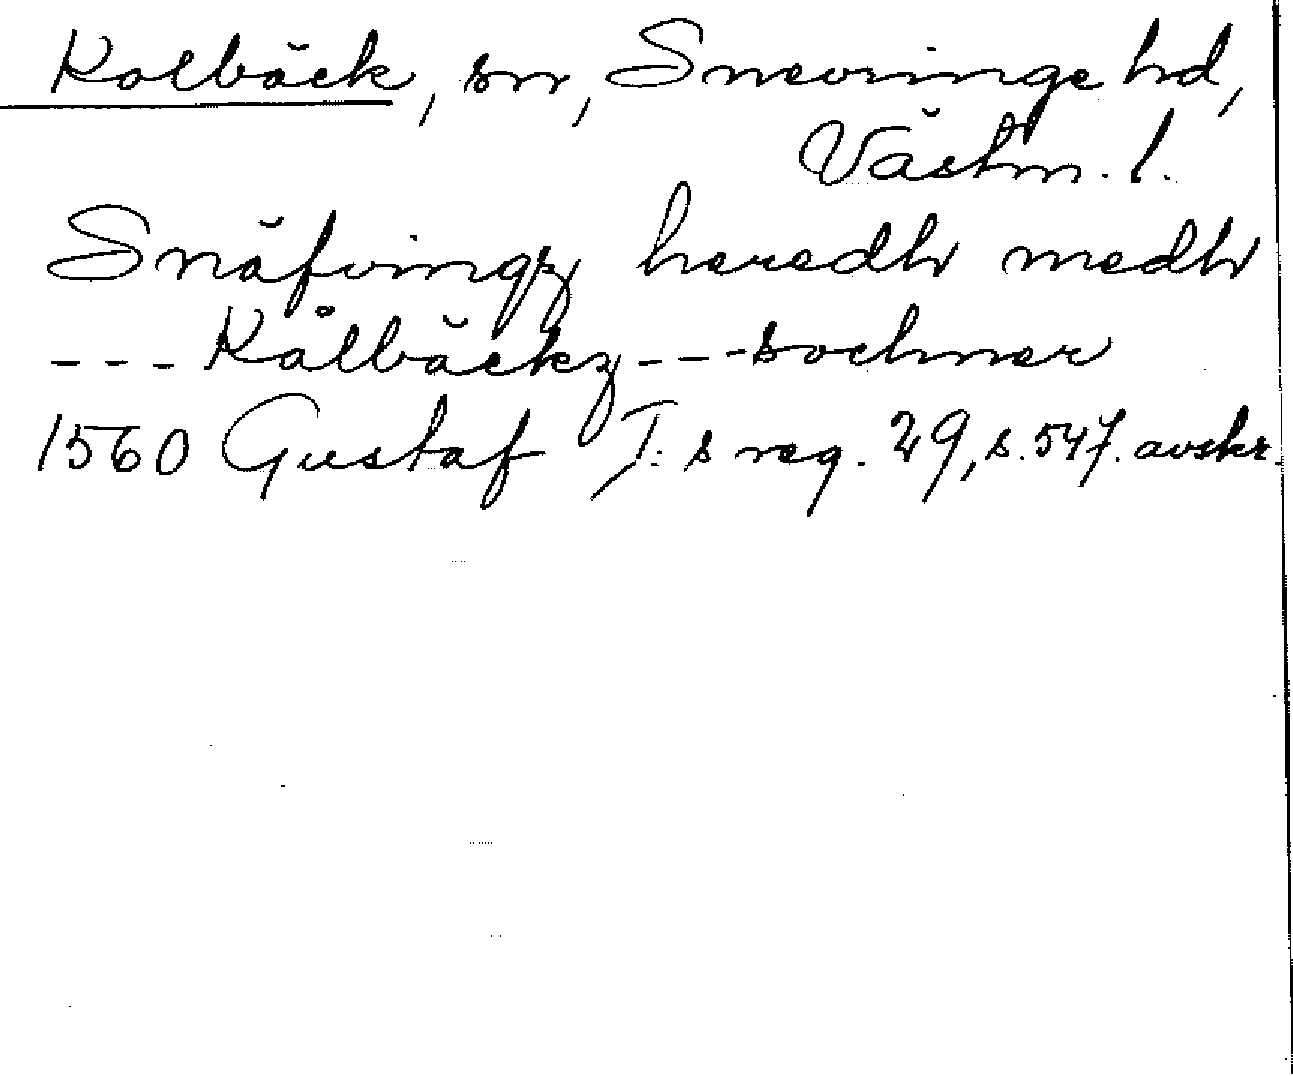 Kolbäck, sn, Snevringe hd,
Västm. l.
Snäfvingz heredh medh
--- Kålbäckz --- sochner
1560 Gustaf I:s reg. 29, s. 547. avskr.